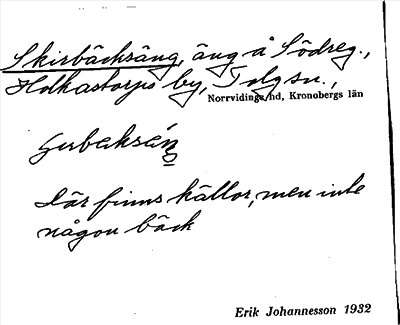 Skirbäcksäng, äng å Södreg.,
Holkastorps by, Tolg sn.,
Norrvidinge hd, Kronobergs län
Där finns källor, men inte
någon bäck
Erik Johannesson 1932